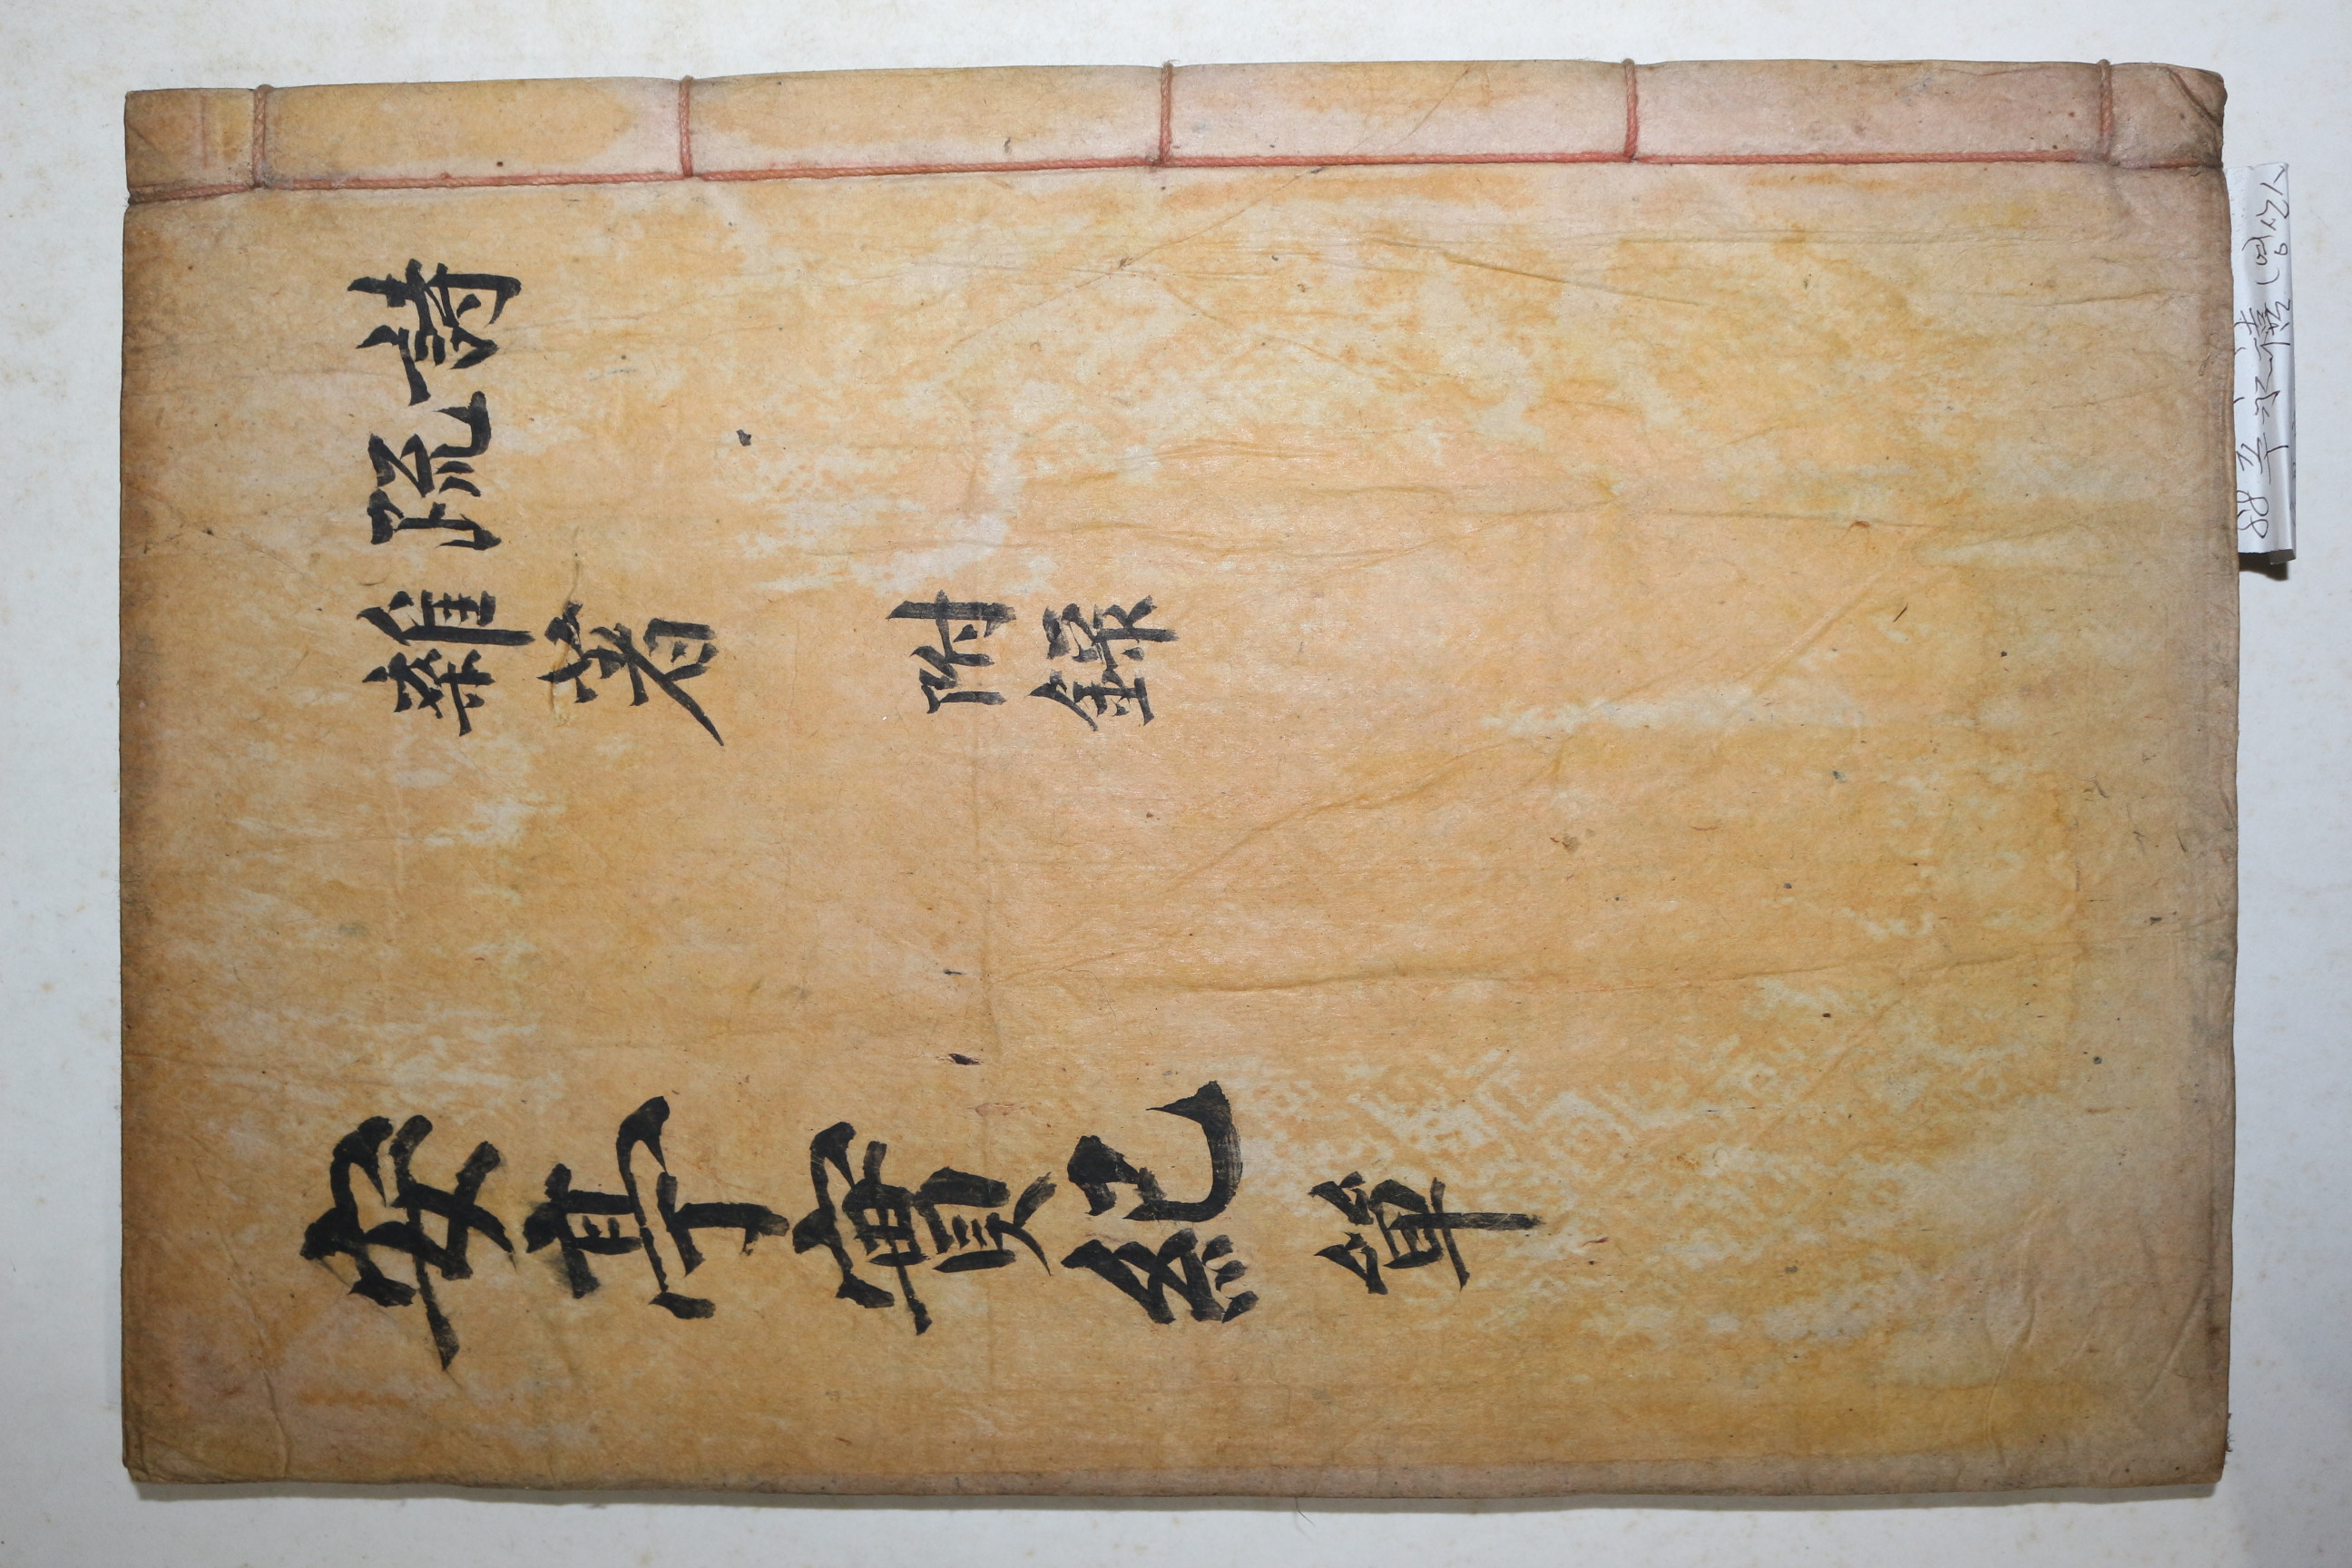 詩
疏
雜著 附錄
安亭實紀 單
88 辛永禧 (영산人